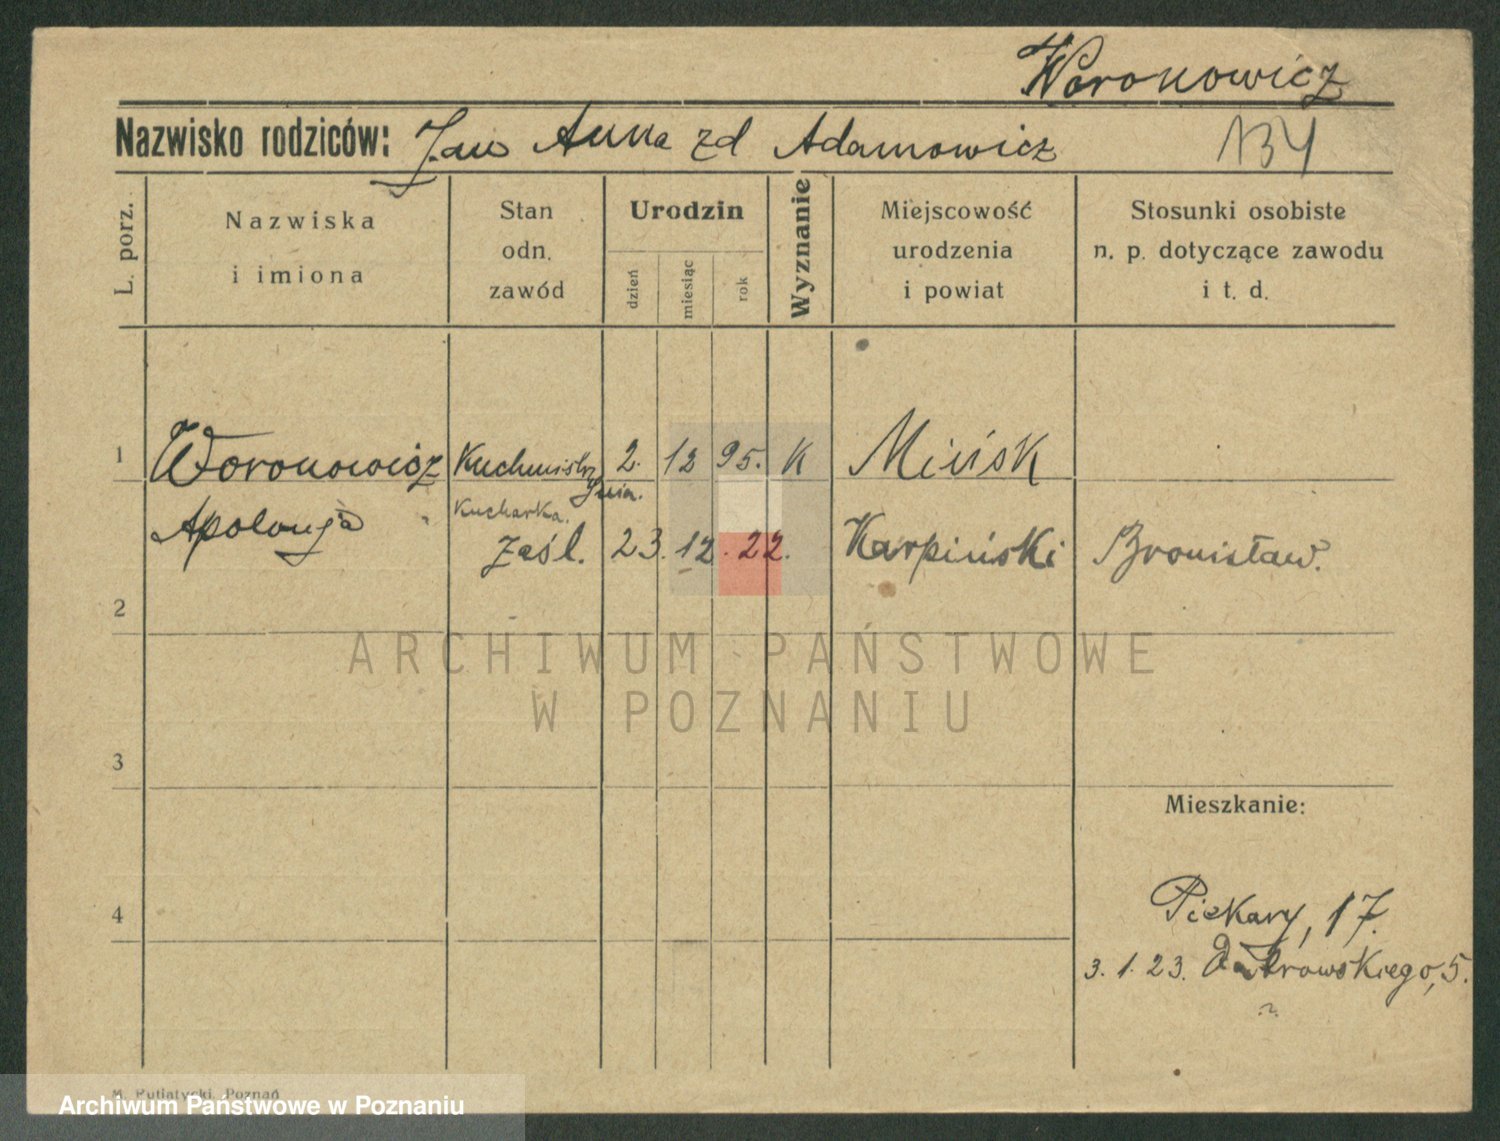 Woronowicz
Nazwisko rodziców: Jan Anna zd Adamowicz 134
L. porz.
Nazwiska
i imiona
Stan
odn.
zawód
Urodzin
dzień
miesiąc
rok
Wyznanie
Miejscowość
urodzenia
i powiat
Stosunki osobiste
n. p. dotyczące zawodu
i t. d.
1 Woronowicz Kuchmistrz 2. 12 95. K Mińsk
ynia.
Apolonja Kucharka.
zaśl. 23. 12. 22. Karpiński Bronisław.
2
ARCHIWUM PAŃSTWOWE
W POZNANIU
3
Mieszkanie:
4
Piekary, 17.
3. 1. 23. Dąbrowskiego, 5.
M. Putiatycki, Poznań
Archiwum Państwowe w Poznaniu